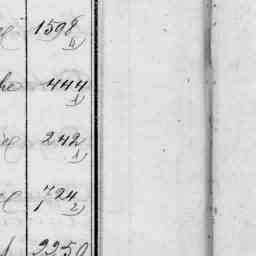 1598
4)
444
1)
242
1)
724
2)
2250